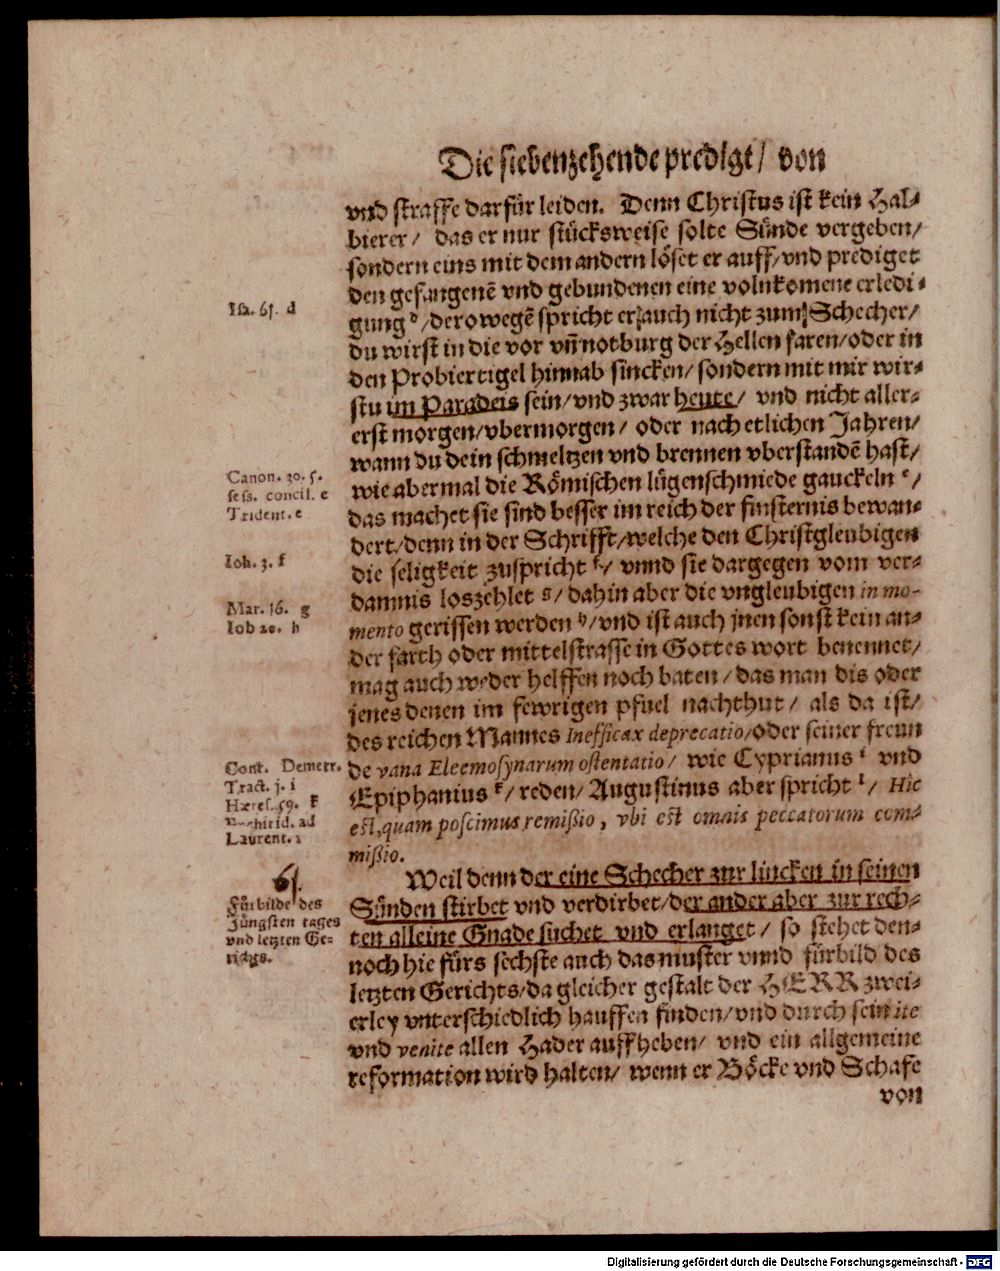 Die siebenzehende predigt/ von
vnd straffe darfür leiden. Denn Christus ist kein Hal-
bierer/ das er nur stücksweise solte Sünde vergeben/
sondern eins mit dem andern löset er auff/vnd prediget
den gefangenē vnd gebundenen eine volnkomene erledi-
Isa. 61. d
gung d/derowegē spricht er auch nicht zum Schecher/
du wirst in die vor vñ notburg der Hellen faren/oder in
den Probiertigel hinnab sincken/ sondern mit mir wir-
stu im Paradeis sein/vnd zwar heute/ vnd nicht aller-
erst morgen/vbermorgen/ oder nach etlichen Jahren/
wann du dein schmeltzen vnd brennen vberstandē hast/
Canon. 30. s.
sess. concil. e
Trident. e
wie abermal die Römischen lügenschmiede gauckeln e/
das machet sie sind besser im reich der finsternis bewan-
dert/denn in der Schrifft/welche den Christgleubigen
Ioh. 3. f
die seligkeit zuspricht f/ vnnd sie dargegen vom ver-
Mar. 16. g
damnis loszehlet g/ dahin aber die vngleubigen in mo-
Iob 20. h
mento gerissen werden h/vnd ist auch jnen sonst kein an-
der farth oder mittelstrasse in Gottes wort benennet/
mag auch weder helffen noch baten/das man dis oder
jenes denen im fewrigen pfuel nachthut/ als da ist/
des reichen Mannes Inefficax deprecatio/oder seiner freun
Cont. Demetr.
Tract. j. i
Hæres. 59. k
Enchirid. ad
Laurent.
de vana Eleemosynarum ostentatio/ wie Cyprianus i vnd
Epiphanius k/ reden/ Augustinus aber spricht l/ Hic
est, quam poscimus remißio, vbi est omnis peccatorum com-
mißio.
61.
Fürbilde des
Jüngsten tages
vnd letzten Ge-
richts.
Weil denn der eine Schecher zur lincken in seinen
Sünden stirbet vnd verdirbet/der ander aber zur rech-
ten alleine Gnade suchet vnd erlanget/ so stehet den-
noch hie fürs sechste auch das muster vnnd fürbild des
letzten Gerichts/da gleicher gestalt der HERR zwei-
erley vnterschiedlich hauffen finden/vnd durch sein ite
vnd venite allen Hader auffheben/ vnd ein allgemeine
reformation wird halten/ wenn er Böcke vnd Schafe
von
Digitalisierung gefördert durch die Deutsche Forschungsgemeinschaft - DFG